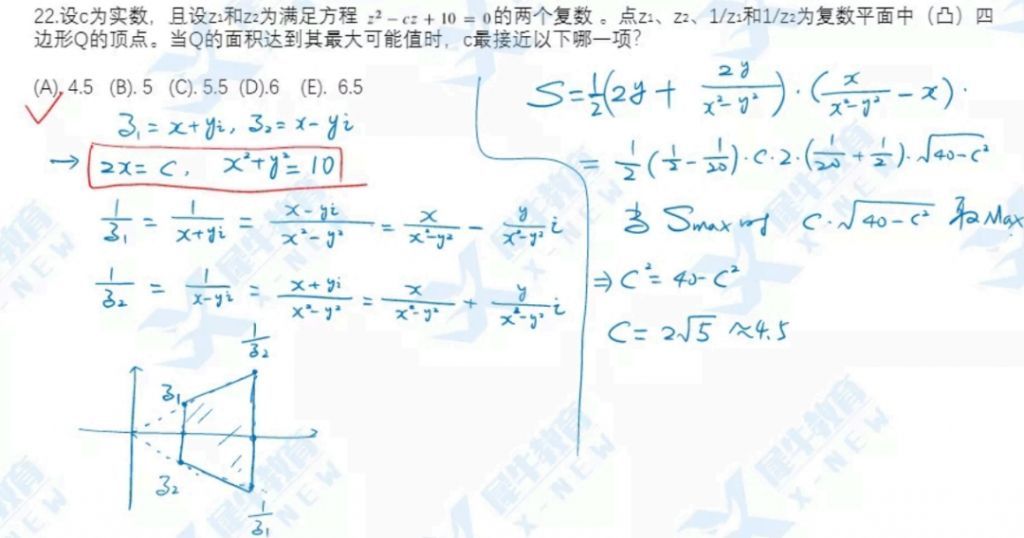 22.设c为实数，且设z1和z2为满足方程 z² − cz + 10 = 0的两个复数 。点z1、z2、1/z1和1/z2为复数平面中（凸）四
边形Q的顶点。当Q的面积达到其最大可能值时，c最接近以下哪一项？
(A). 4.5 (B). 5 (C). 5.5 (D).6 (E). 6.5
z₁ = x+yi, z₂ = x−yi
→ 2x = c, x²+y² = 10
1/z₁ = 1/(x+yi) = (x−yi)/(x²−y²) = x/(x²−y²) − y/(x²−y²) i
1/z₂ = 1/(x−yi) = (x+yi)/(x²−y²) = x/(x²−y²) + y/(x²−y²) i
1/z₂
z₁
z₂
1/z₁
S = 1/2(2y + 2y/(x²−y²))·(x/(x²−y²) − x).
= 1/2(1/2 − 1/20)·c·2·(1/20 + 1/2)·√(40−c²)
当 Smax 时 c·√(40−c²) 取Max
⇒ c² = 40−c²
c = 2√5 ≈4.5
犀牛教育
X-NEW